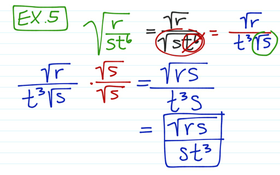 EX.5 √(r/(st⁶)) = √r/√(st⁶) = √r/(t³√s)
√r/(t³√s) · √s/√s = √(rs)/(t³s)
= √(rs)/(st³)